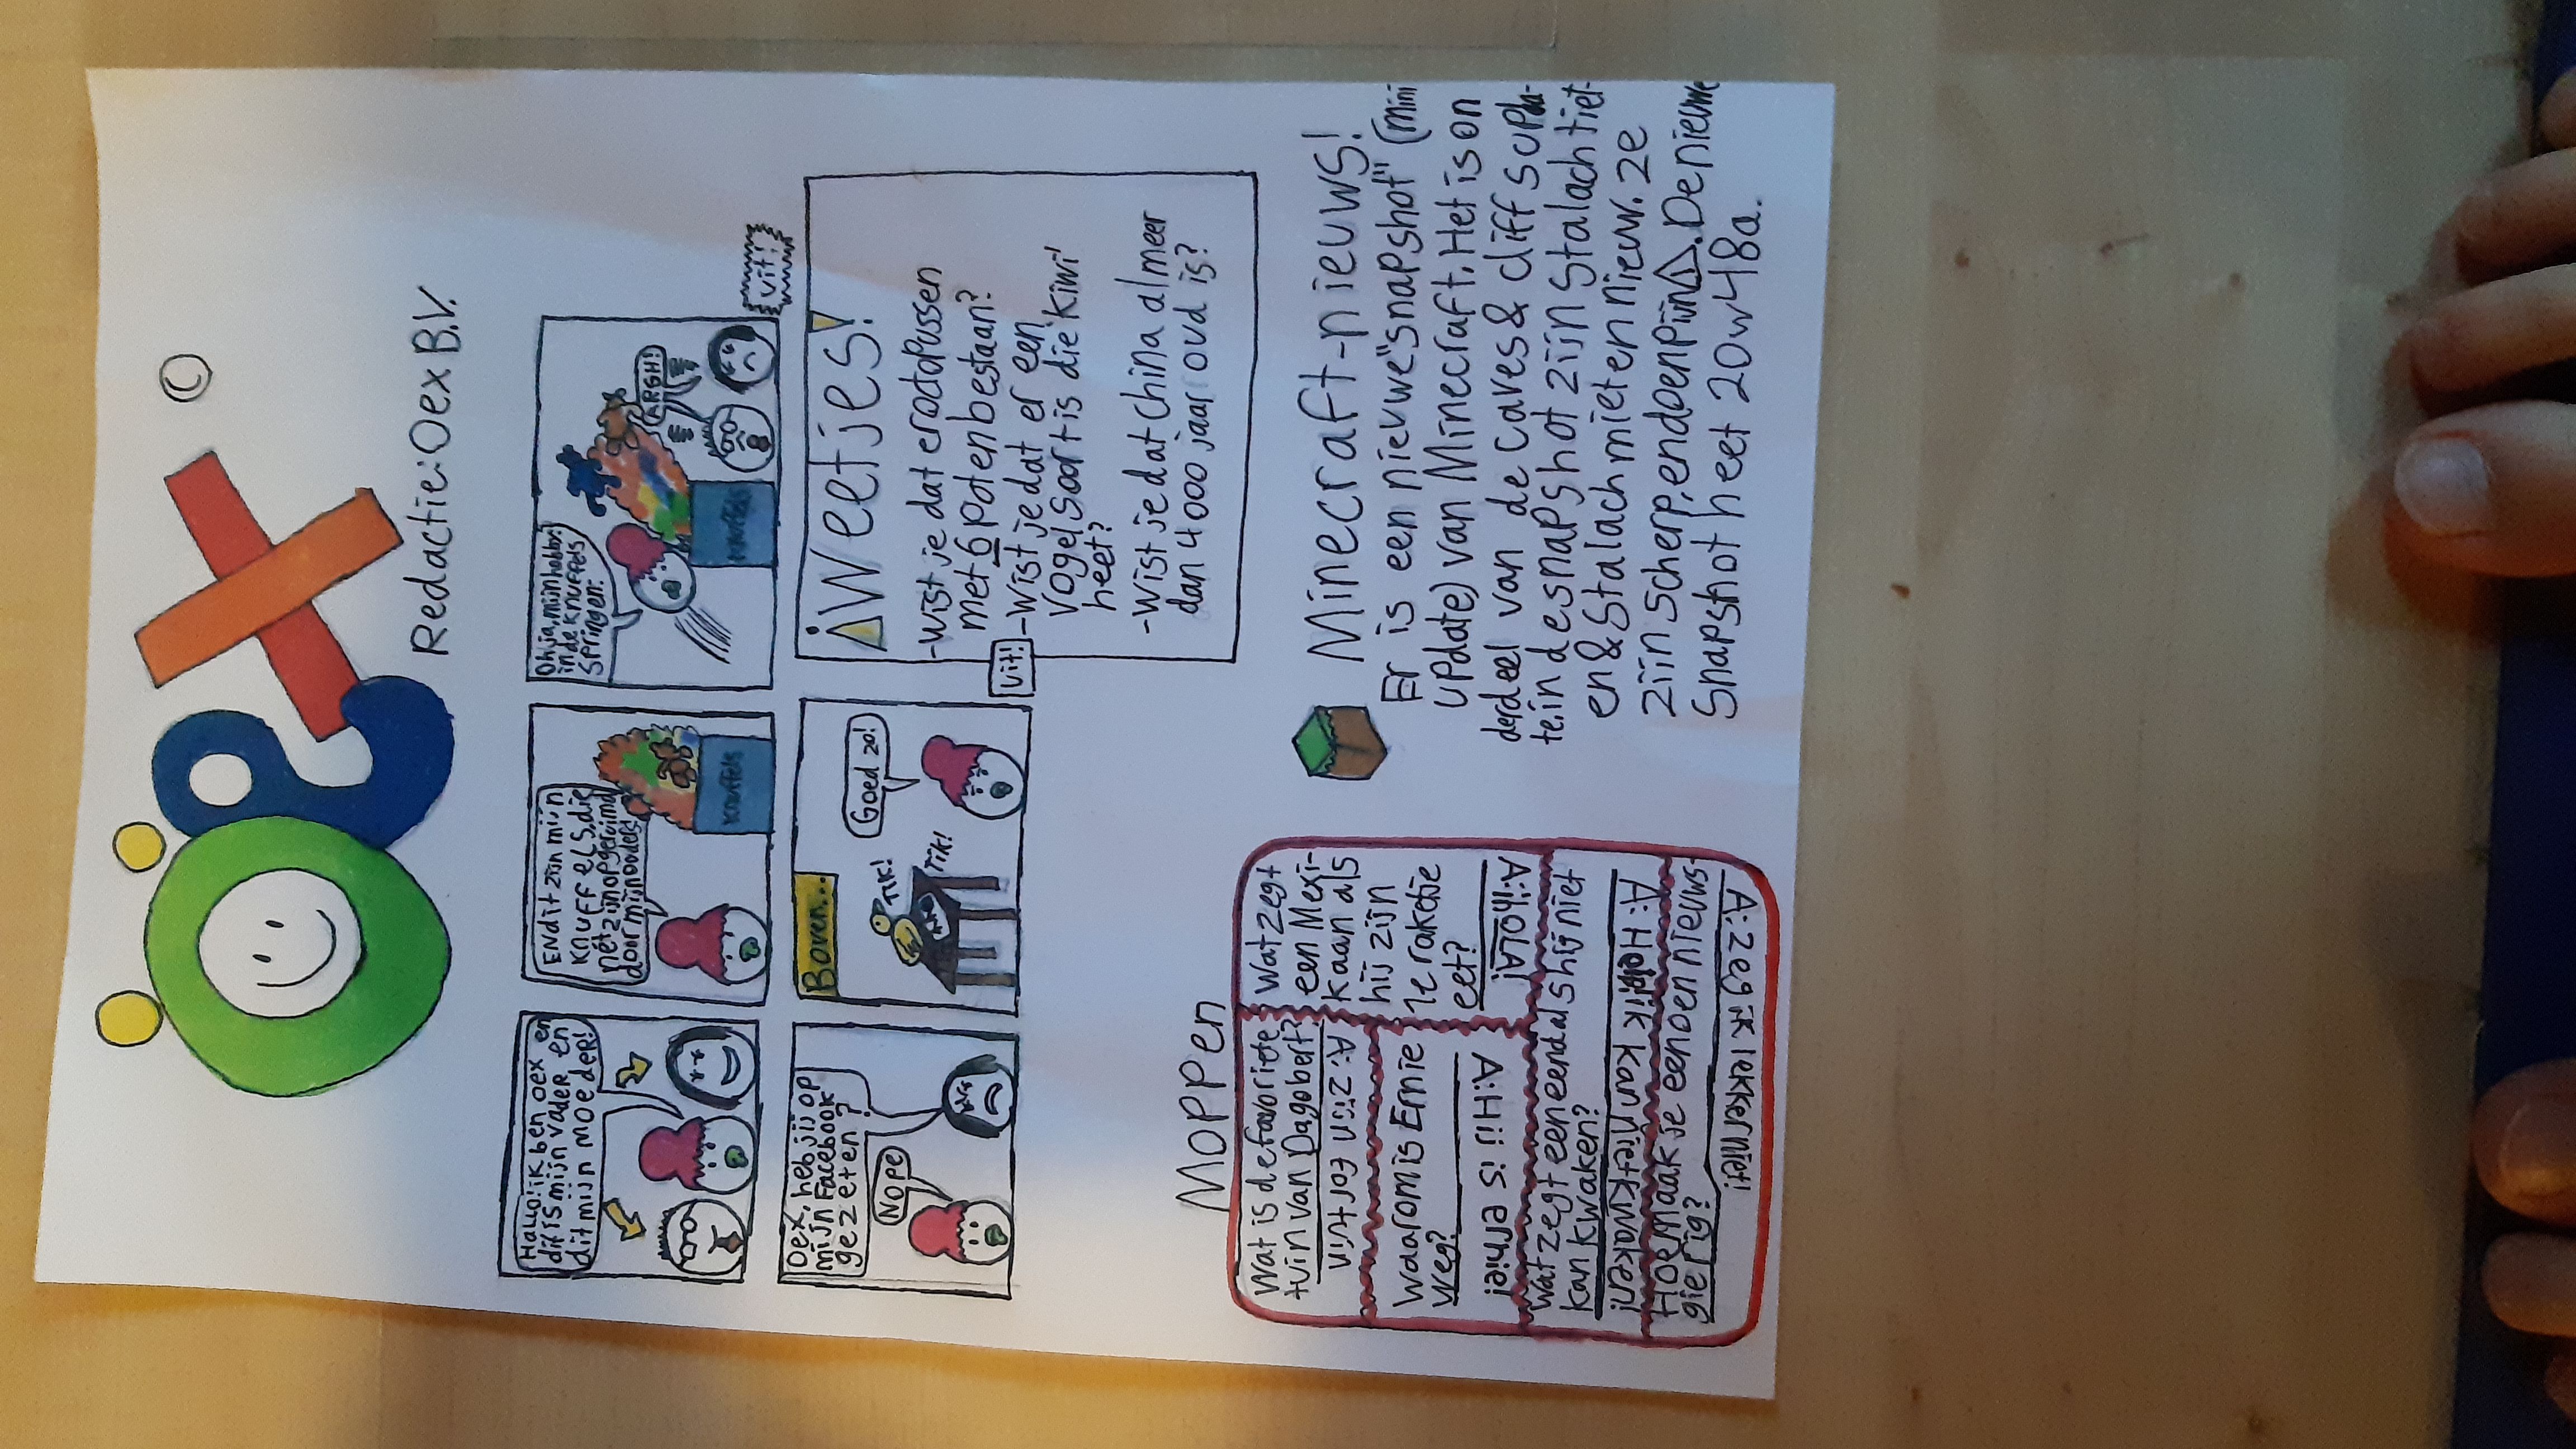 Oex
©
Redactie: Oex B.V.
Hallo! ik ben oex en
dit is mijn vader en
dit mijn moeder!
ENdit zijn mijn
knuffels, die
nét zijn opgeruimd
door mijn ouders!
knuffels
Oh ja, mijn hobby:
in de knuffels
springen:
ARGH!
knuffels
uit!
Oex, heb jij op
mijn Facebook
gezeten?
Nope
Boven...
TIK!
Tik!
Goed zo!
uit!
¡Weetjes!
-Wist je dat er octopussen
met 6 poten bestaan?
-Wist je dat er een
vogelsoort is die 'Kiwi'
heet?
-Wist je dat China al meer
dan 4000 jaar oud is?
Moppen
Wat is de favoriete
tuin van Dagobert?
A: Zijn fortuin
Waarom is Ernie
weg?
A: Hij is erhie!
Wat zegt
een Mexi-
kaan als
hij zijn
1e raketje
eet?
A: ¡hOLA!
Wat zegt een eend als hij niet
kan kwaken?
A: Help! ik kan niet kwaken!
Hoe maak je een oen nieuws-
gierig?
A: Zeg ik lekker niet!
Minecraft-nieuws!
Er is een nieuwe "snapshot" (mini
update) van Minecraft. Het is on
derdeel van de caves & cliffs upda-
te. in de snapshot zijn Stalachtiet-
en & Stalachmieten nieuw. ze
zijn scherp, en doen pijn⚠. De nieuwe
Snapshot heet 20w48a.